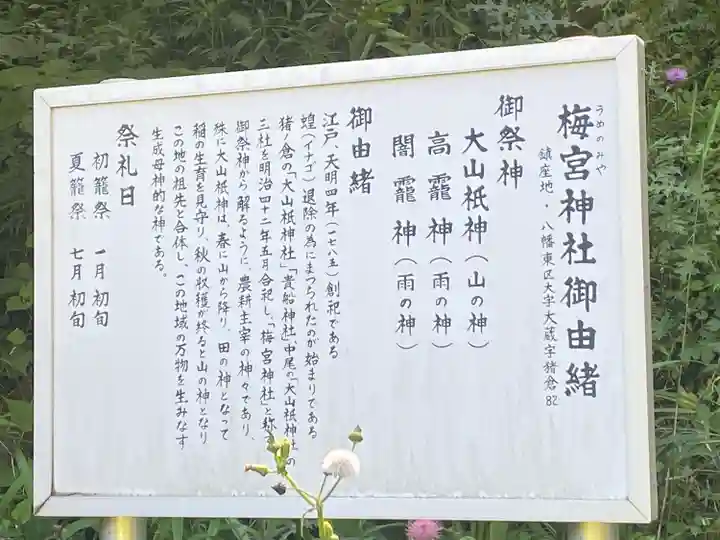 うめのみや
梅宮神社御由緒
鎮座地・八幡東区大字大蔵字猪倉82
御祭神
大山祇神（山の神）
高龗神（雨の神）
闇龗神（雨の神）
御由緒
江戸、天明四年（一七八五）創祀である
蝗（イナゴ）退除の為にまつられたのが始まりである
猪ノ倉の「大山祇神社」「貴船神社」、中尾の「大山祇神社」の
三社を明治四十二年五月合祀し、「梅宮神社」と称
御祭神から解るように、農耕主宰の神々であり、
殊に大山祇神は、春に山から降り、田の神となって
稲の生育を見守り、秋の収穫が終ると山の神となり
この地の祖先と合体し、この地域の万物を生みなす
生成母神的な神である。
祭礼日
初籠祭 一月初旬
夏籠祭 七月初旬